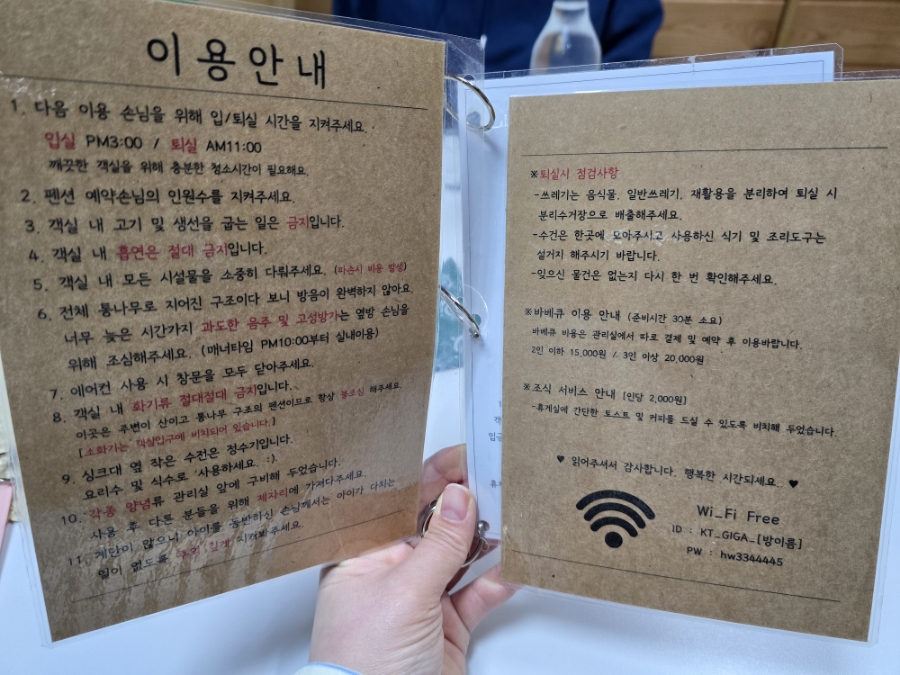 이용안내
1. 다음 이용 손님을 위해 입/퇴실 시간을 지켜주세요.
입실 PM3:00 / 퇴실 AM11:00
깨끗한 객실을 위해 충분한 청소시간이 필요해요.
2. 펜션 예약손님의 인원수를 지켜주세요.
3. 객실 내 고기 및 생선을 굽는 일은 금지입니다.
4. 객실 내 흡연은 절대 금지입니다.
5. 객실 내 모든 시설물을 소중히 다뤄주세요. (파손시 비용 발생)
6. 전체 통나무로 지어진 구조이다 보니 방음이 완벽하지 않아요.
너무 늦은 시간까지 과도한 음주 및 고성방가는 옆방 손님을
위해 조심해주세요. (매너타임 PM10:00부터 실내이용)
7. 에어컨 사용 시 창문을 모두 닫아주세요.
8. 객실 내 화기류 절대절대 금지입니다.
이곳은 주변이 산이고 통나무 구조의 펜션이므로 항상 불조심 해주세요.
[소화기는 객실입구에 비치되어 있습니다.]
9. 싱크대 옆 작은 수전은 정수기입니다.
요리수 및 식수로 사용하세요 :)
10. 각종 양념류 관리실 앞에 구비해 두었습니다.
사용 후 다른 분들을 위해 제자리에 가져다주세요.
11. 계단이 많으니 아이를 동반하신 손님께서는 아이가 다치는
일이 없도록 지켜주세요.
※퇴실시 점검사항
-쓰레기는 음식물, 일반쓰레기, 재활용을 분리하여 퇴실 시
분리수거장으로 배출해주세요.
-수건은 한곳에 모아주시고 사용하신 식기 및 조리도구는
설거지 해주시기 바랍니다.
-잊으신 물건은 없는지 다시 한 번 확인해주세요.
※바베큐 이용 안내 (준비시간 30분 소요)
바베큐 비용은 관리실에서 따로 결제 및 예약 후 이용바랍니다.
2인 이하 15,000원 / 3인 이상 20,000원
※조식 서비스 안내 [인당 2,000원]
-휴게실에 간단한 토스트 및 커피를 드실 수 있도록 비치해 두었습니다.
♥ 읽어주셔서 감사합니다. 행복한 시간되세요. ♥
Wi_Fi Free
ID : KT_GIGA_[방이름]
PW : hw3344445